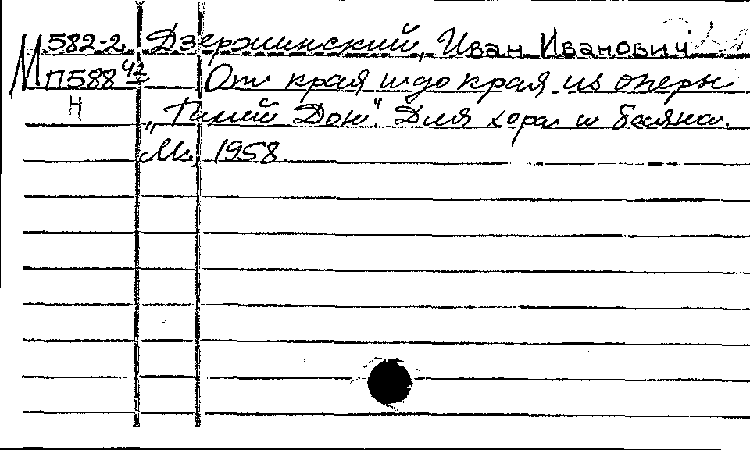 М 582-2 Дзержинский, Иван Иванович
П588 42 От края и до края из оперы
Н „Тихий Дон". Для хора и баяна.
М., 1958